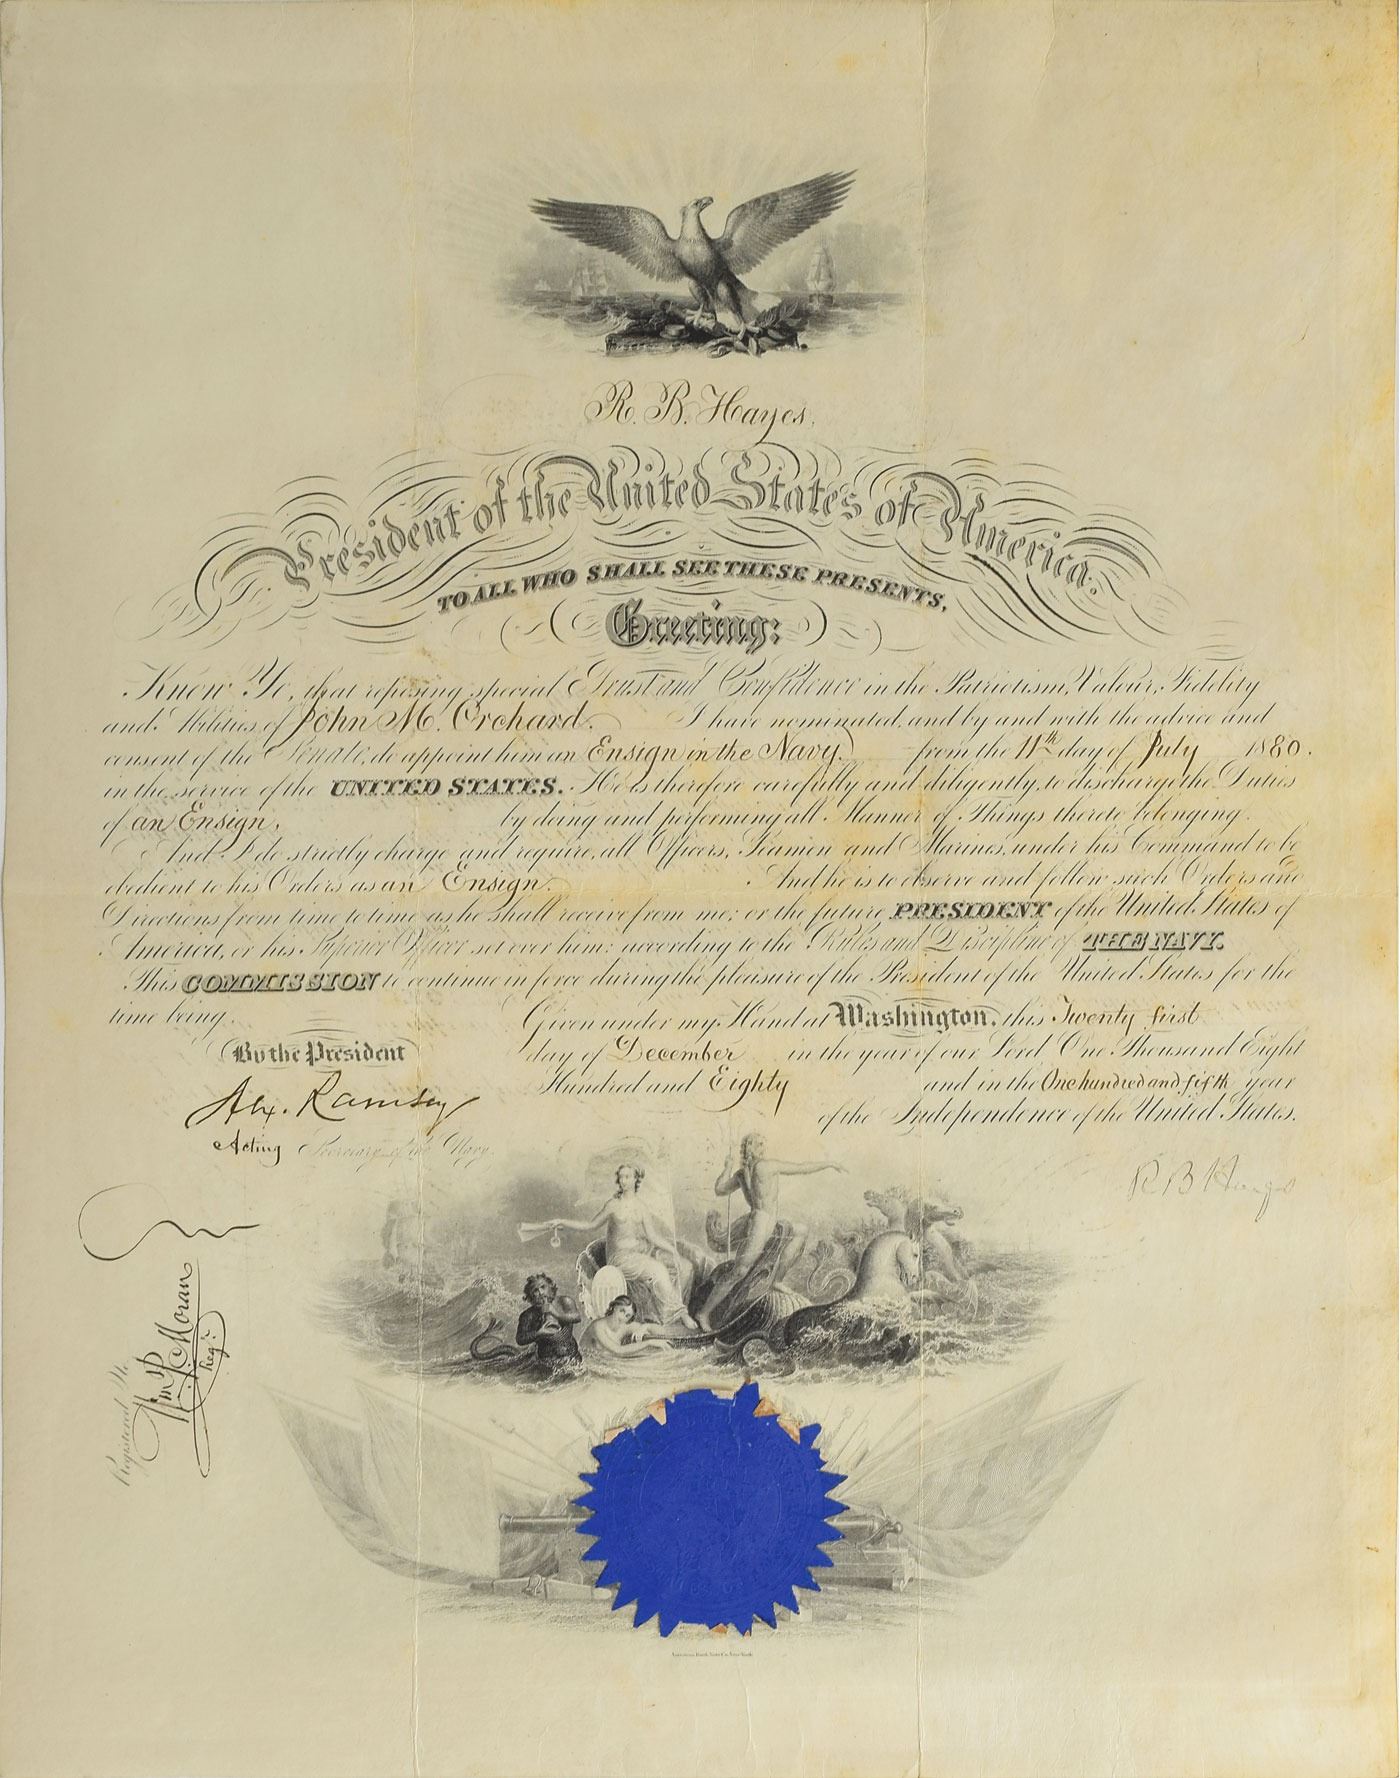 R. B. Hayes,
President of the United States of America.
TO ALL WHO SHALL SEE THESE PRESENTS,
Greeting:
Know Ye, that reposing special Trust and Confidence in the Patriotism, Valour, Fidelity
and Abilities of John M. Orchard. I have nominated, and by and with the advice and
consent of the Senate, do appoint him an Ensign in the Navy from the 11th day of July 1880.
in the service of the UNITED STATES. He is therefore carefully and diligently, to discharge the Duties
of an Ensign, by doing and performing all Manner of Things thereto belonging.
And I do strictly charge and require, all Officers, Seamen and Marines, under his Command to be
obedient to his Orders as an Ensign. And he is to observe and follow such Orders and
Directions from time to time as he shall receive from me; or the future PRESIDENT of the United States of
America, or his Superior Officer set over him; according to the Rules and Discipline of THE NAVY.
This COMMISSION to continue in force during the pleasure of the President of the United States for the
time being.
Given under my Hand at Washington, this Twenty first
day of December in the year of our Lord One Thousand Eight
Hundred and Eighty and in the One hundred and fifth year
of the Independence of the United States.
By the President
Alex. Ramsey
Acting Secretary of the Navy.
R B Hayes
Registered No.
Wm P. Moran
Reg:
American Bank Note Co. New York